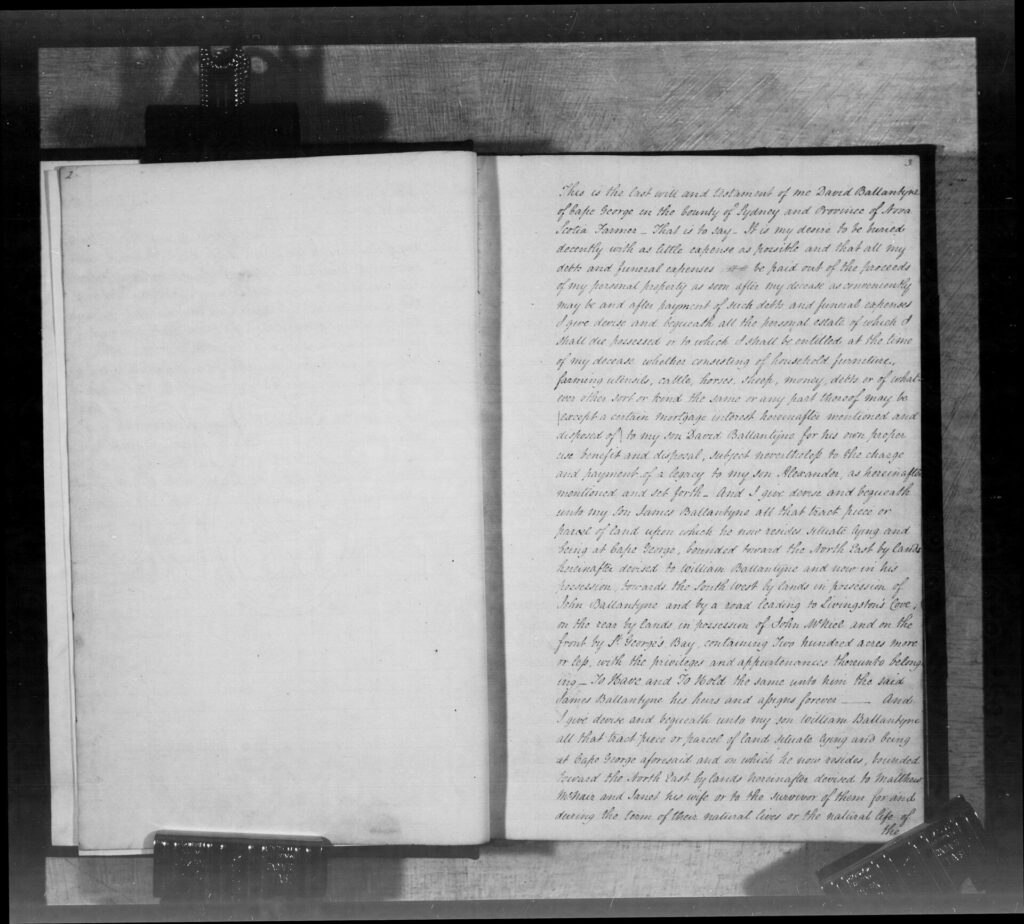 2
3
This is the last will and testament of me David Ballantyne
of Cape George in the County of Sydney and Province of Nova
Scotia Farmer – That is to say – It is my desire to be buried
decently with as little expense as possible and that all my
debts and funeral expenses be paid out of the proceeds
of my personal property as soon after my decease as conveniently
may be and after payment of such debts and funeral expenses
I give devise and bequeath all the personal estate of which I
shall die possessed or to which I shall be entitled at the time
of my decease whether consisting of household furniture,
farming utensils, cattle, horses, sheep, money, debts or of what-
ever other sort or kind the same or any part thereof may be
(except a certain mortgage interest hereinafter mentioned and
disposed of) to my son David Ballantyne for his own proper
use benefit and disposal, subject nevertheless to the charge
and payment of a legacy to my son Alexander, as hereinafter
mentioned and set forth – And I give devise and bequeath
unto my Son James Ballantyne all that tract piece or
parcel of land upon which he now resides situate lying and
being at Cape George, bounded toward the North East by lands
hereinafter devised to William Ballantyne and now in his
possession, towards the South West by lands in possession of
John Ballantyne and by a road leading to Livingston's Cove,
on the rear by lands in possession of John McNiel and on the
front by St. George's Bay, containing Two hundred acres more
or less, with the privileges and appurtenances thereunto belong-
ing – To Have and To Hold the same unto him the said
James Ballantyne his heirs and assigns forever — And
I give devise and bequeath unto my son William Ballantyne
all that tract piece or parcel of land situate lying and being
at Cape George aforesaid and on which he now resides, bounded
toward the North East by lands hereinafter devised to Matthew
McNair and Janet his wife or to the survivor of them for and
during the term of their natural lives or the natural life of
the